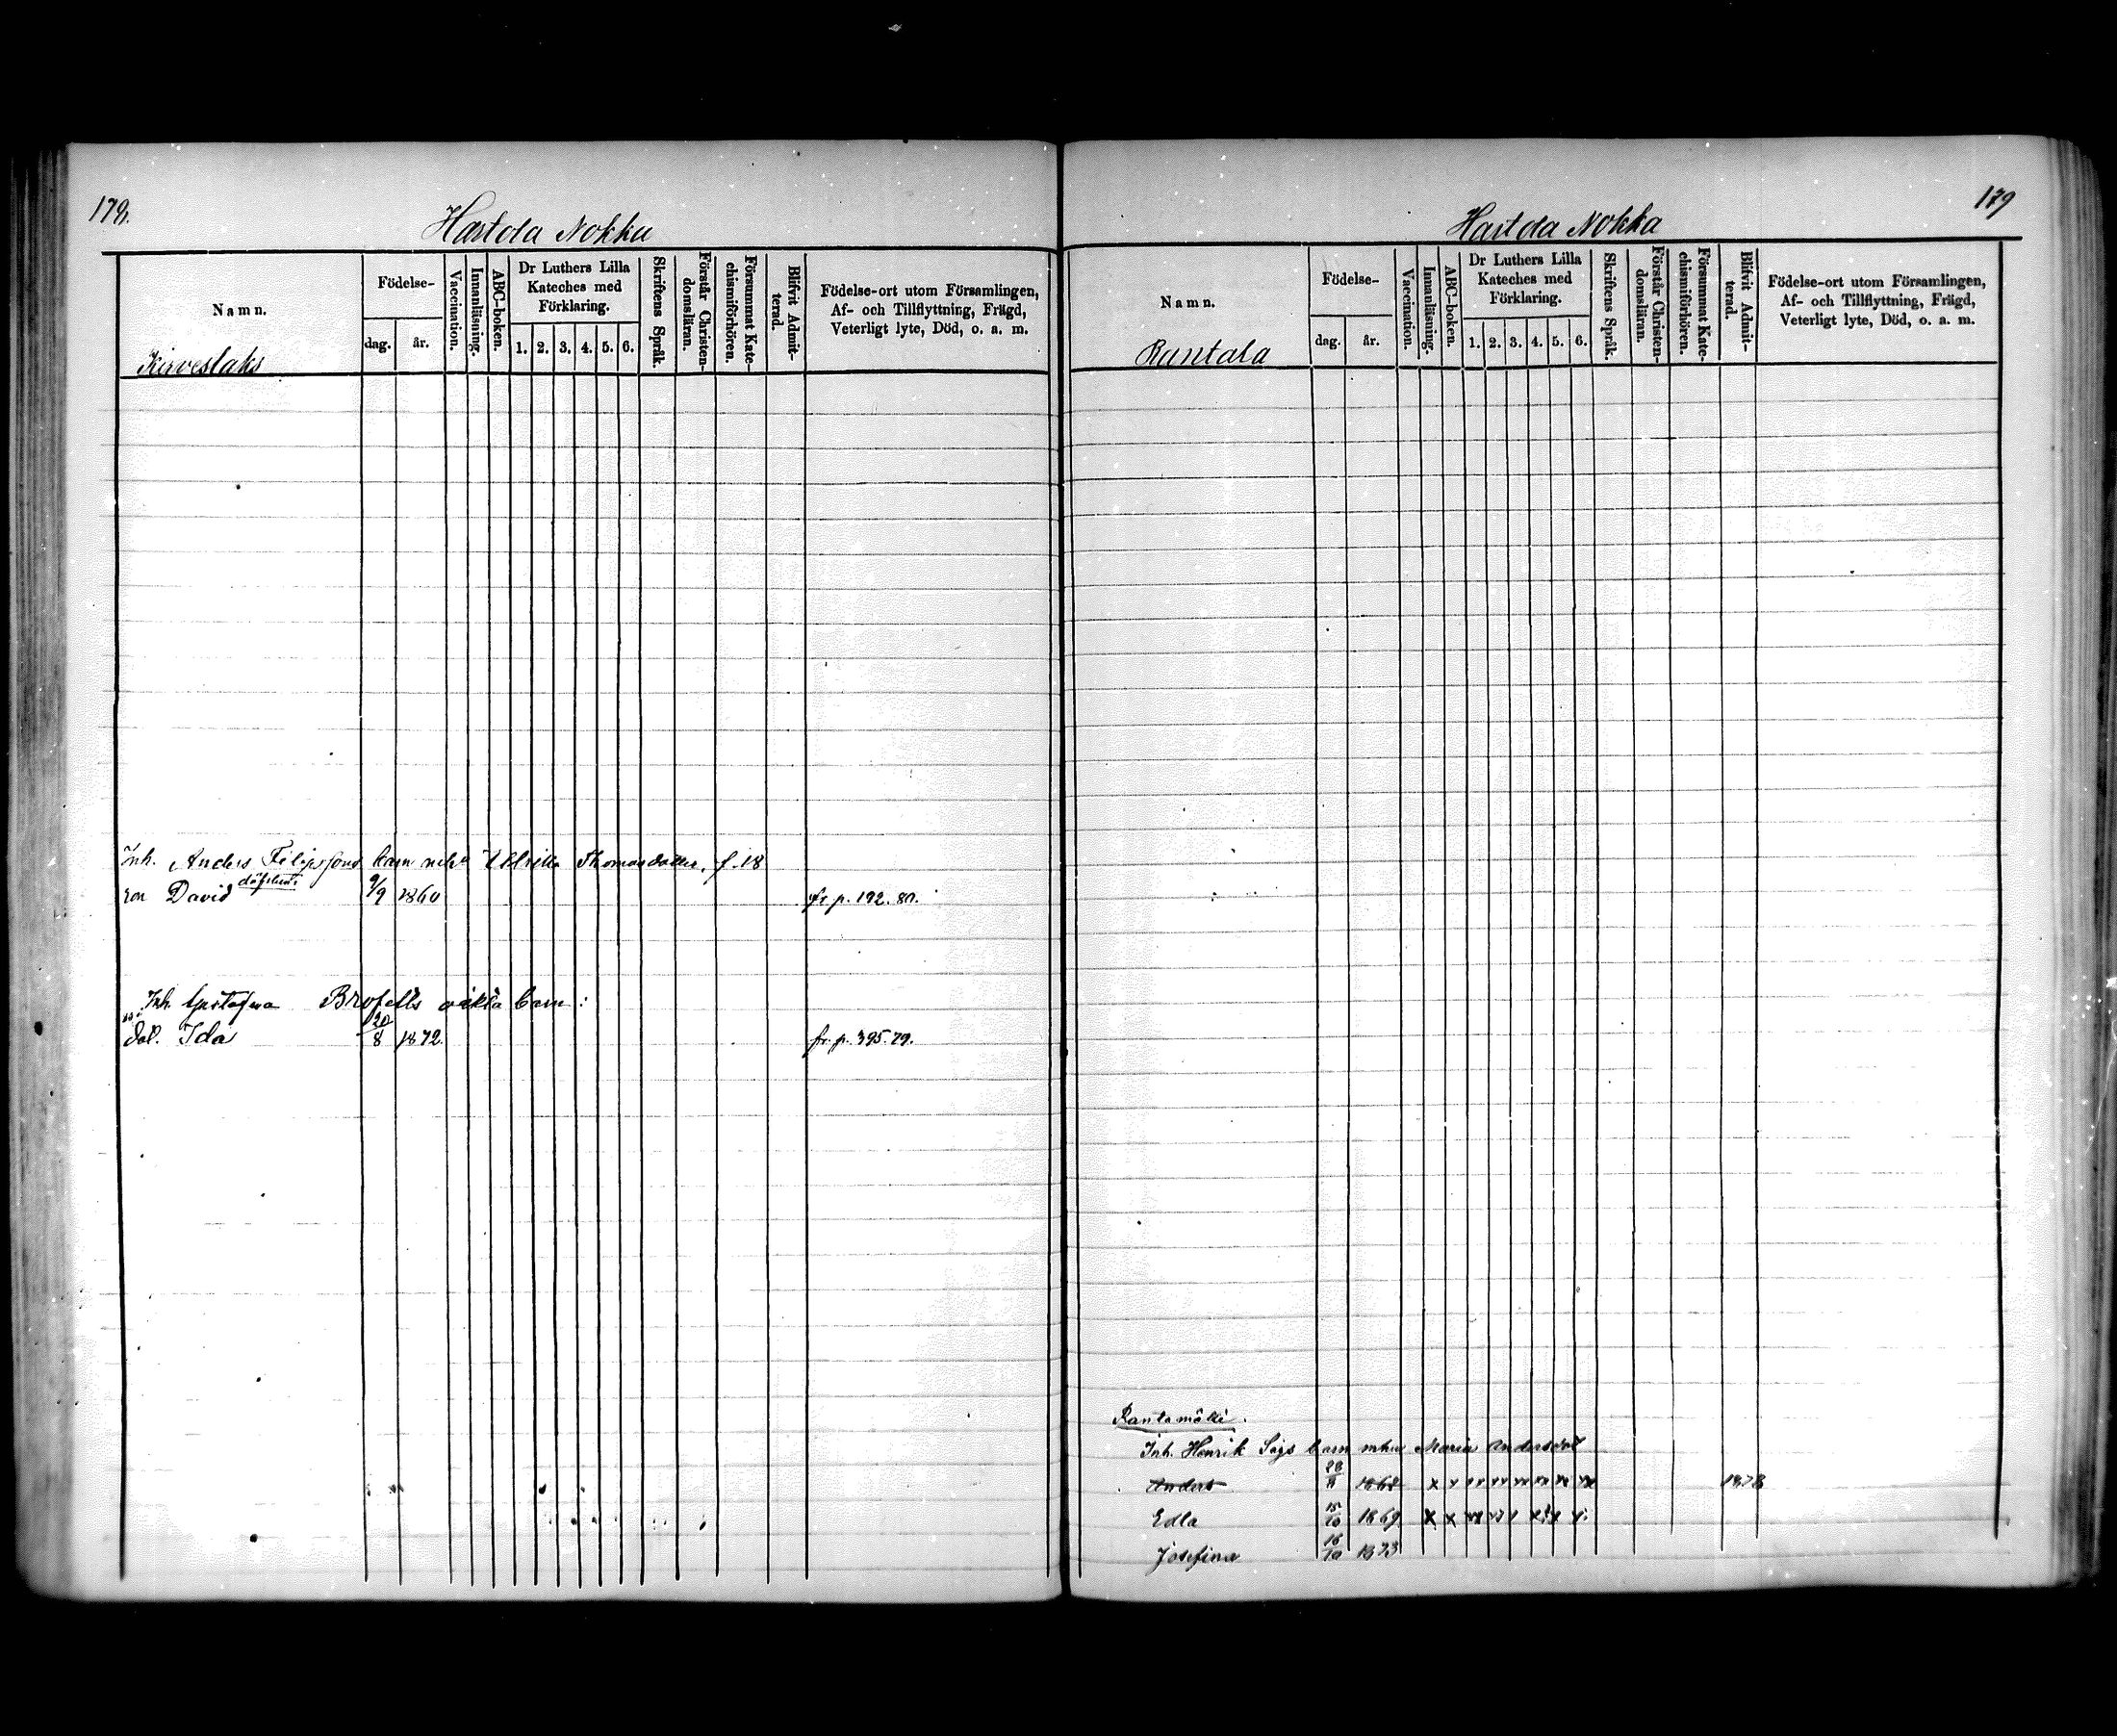 178.
Hartola Nokka
Namn.
Födelse-
dag.
år.
Vaccination.
Innanläsning.
ABC-boken.
Dr Luthers Lilla
Kateches med
Förklaring.
1. 2. 3. 4. 5. 6.
Skriftens Språk.
Förstår Christen-
domsläran.
Försummat Kate-
chismiförhören.
Blifvit Admit-
terad.
Födelse-ort utom Församlingen,
Af- och Tillflyttning, Frägd,
Veterligt lyte, Död, o. a. m.
Kirveslaks
Inh. Anders Filipssons barn mhu Ulrika Thomasdotter, f. 18
son David döfstum 9/9 1860 fr. p. 192. 80.
Inh. Gustafva Brofelts oäkta barn:
dot. Ida 20/8 1872 fr. p. 395. 79.
179
Hartola Nokka
Namn.
Födelse-
dag.
år.
Vaccination.
Innanläsning.
ABC-boken.
Dr Luthers Lilla
Kateches med
Förklaring.
1. 2. 3. 4. 5. 6.
Skriftens Språk.
Förstår Christen-
domsläran.
Försummat Kate-
chismiförhören.
Blifvit Admit-
terad.
Födelse-ort utom Församlingen,
Af- och Tillflyttning, Frägd,
Veterligt lyte, Död, o. a. m.
Rantala
Rantamäki.
Inh. Henrik Sigs barn mhu Maria Andersdot
Anders 1868 1878
Edla 15/10 1869
Josefina 16/10 1873